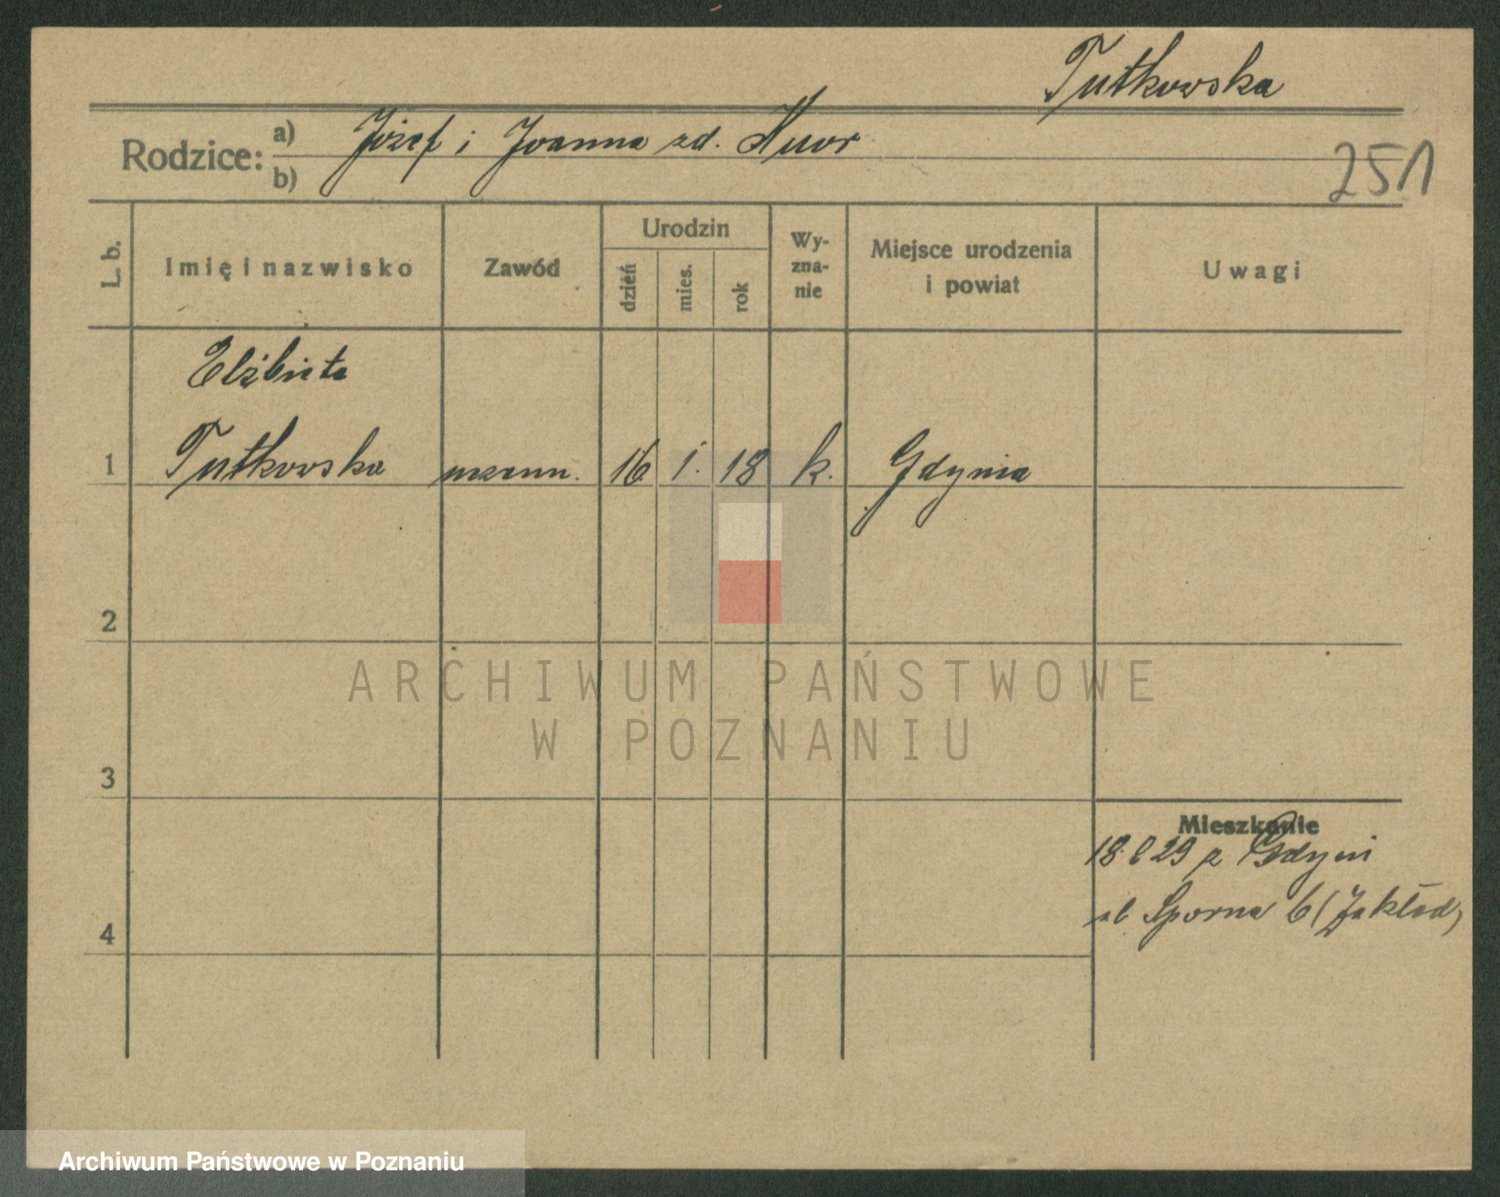 Tutkowska
Rodzice: a) Józef i Joanna zd.
b)
251
L. b.
Imię i nazwisko
Zawód
Urodzin
dzień
mies.
rok
Wy-
zna-
nie
Miejsce urodzenia
i powiat
Uwagi
Elżbieta
1 Tutkowska 16 1. 18 k. Gdynia
2
3
4
Mieszkanie
18.6 29 z Gdyni
ul. Sporna 6 (Zakład)
ARCHIWUM PAŃSTWOWE
W POZNANIU
Archiwum Państwowe w Poznaniu